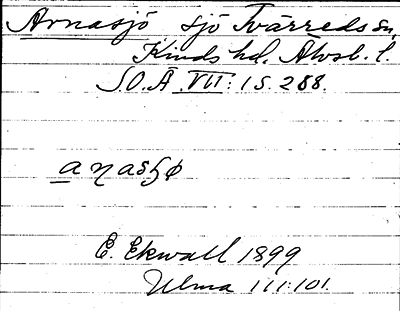 Arnasjö sjö Tvärreds sn.
Kinds hd. Älvsb. l.
S.O.Ä VII:1 S. 288.
E. Ekwall 1899
Ulma 111:101.